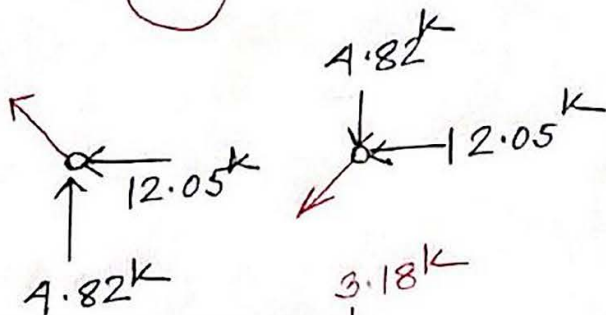 4.82k
12.05k
12.05k
4.82k
3.18k